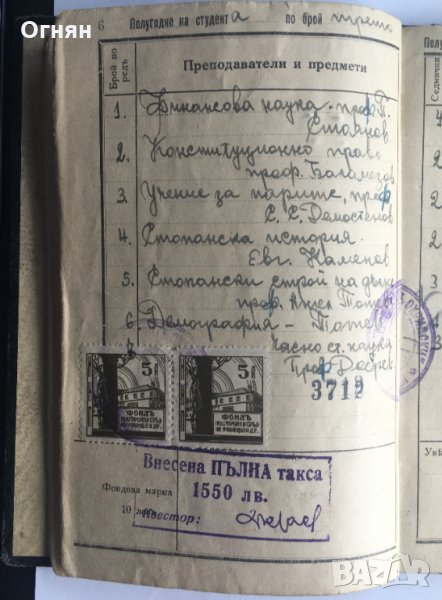 Огнян
6 Полугодие на студента по брой трето
Брой по редъ
Преподаватели и предмети
1. Финансова наука - проф. П.
Стоянов
2. Конституционно право
проф. Баламезов
3 Учение за парите, проф
С. С. Демостенов
4. Стопанска история.
Евг. Каменов
5. Стопански строй на
проф.
6. Демография -
Частно ст. наука
Проф.
3712
5
5
ФОНДЪ
ФОНДЪ
Внесена ПЪЛНА такса
1550 лв.
Фондова марка
10 лева
Квестор:
BAZAR
bg
Полу
Седмични